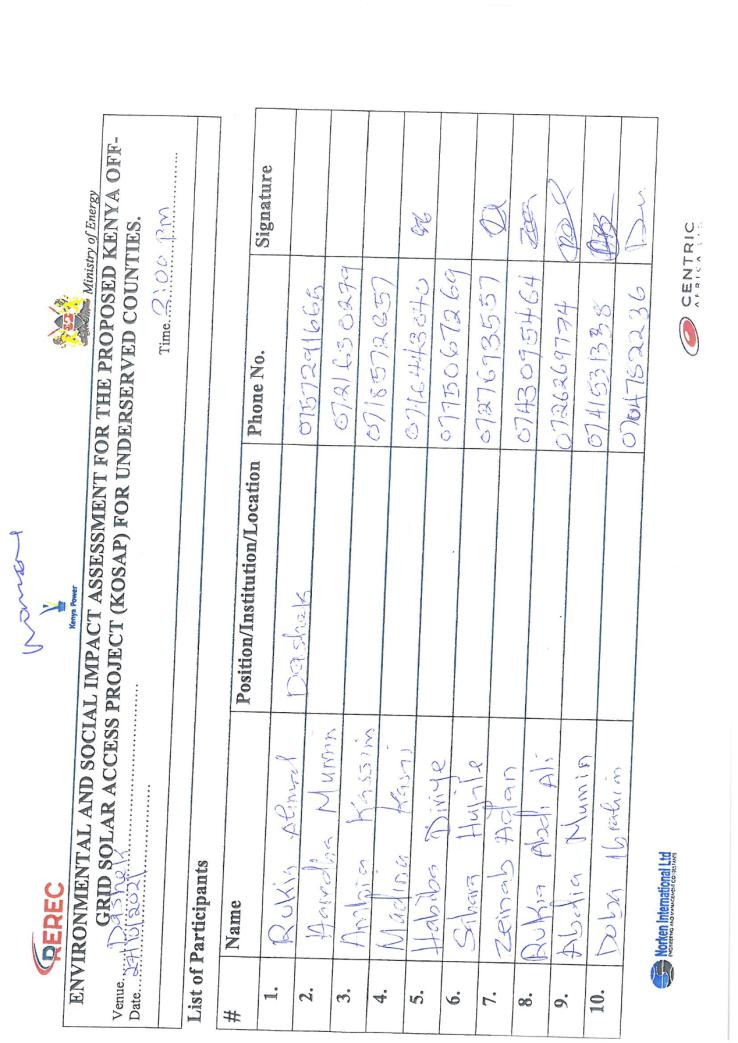 women
REREC
Kenya Power
Ministry of Energy
ENVIRONMENTAL AND SOCIAL IMPACT ASSESSMENT FOR THE PROPOSED KENYA OFF-
GRID SOLAR ACCESS PROJECT (KOSAP) FOR UNDERSERVED COUNTIES.
Venue Dashek
Date Time 2:00 Pm
List of Participants
# Name Position/Institution/Location Phone No. Signature
1. Rukia Ahmed Dashek 0757291668
2. Mumin 0721630279
3. Kassim 0718572657
4. Madina 0716443040
5. Habiba Diriye 0715067269
6. Sahara 0727693557
7. Zeinab Adan 0743095464
8. Rukia Abdi Ali 0726269774
9. Abdia Mumin 0741531338
10. Doba Ibrahim 0704752236
Norken International Ltd
ENGINEERING AND MANAGEMENT CONSULTANTS
CENTRIC
AFRICA LTD.